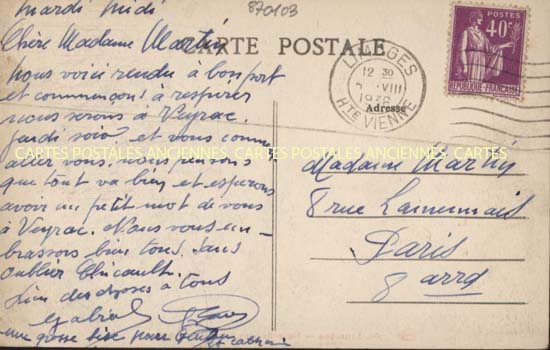 mardi midi
870103
Chère Madame Martin
CARTE POSTALE
Nous voici rendu à bon port
et commençons à respirer
nous serons à Veyrac
Jeudi soir et vous comment
allez vous, nous pensons
que tout va bien et espérons
avoir un petit mot de vous
à Veyrac. Nous vous em-
brassons bien tous. Sans
oublier
des choses à tous
une grosse bise pour
LIMOGES
12 30
VIII
1936
HTE VIENNE
POSTES
40c
REPUBLIQUE FRANÇAISE
Adresse
CARTES POSTALES ANCIENNES. CARTES POSTALES ANCIENNES. CARTES
Madame Martin
8 rue Lamennais
Paris
8 arrd